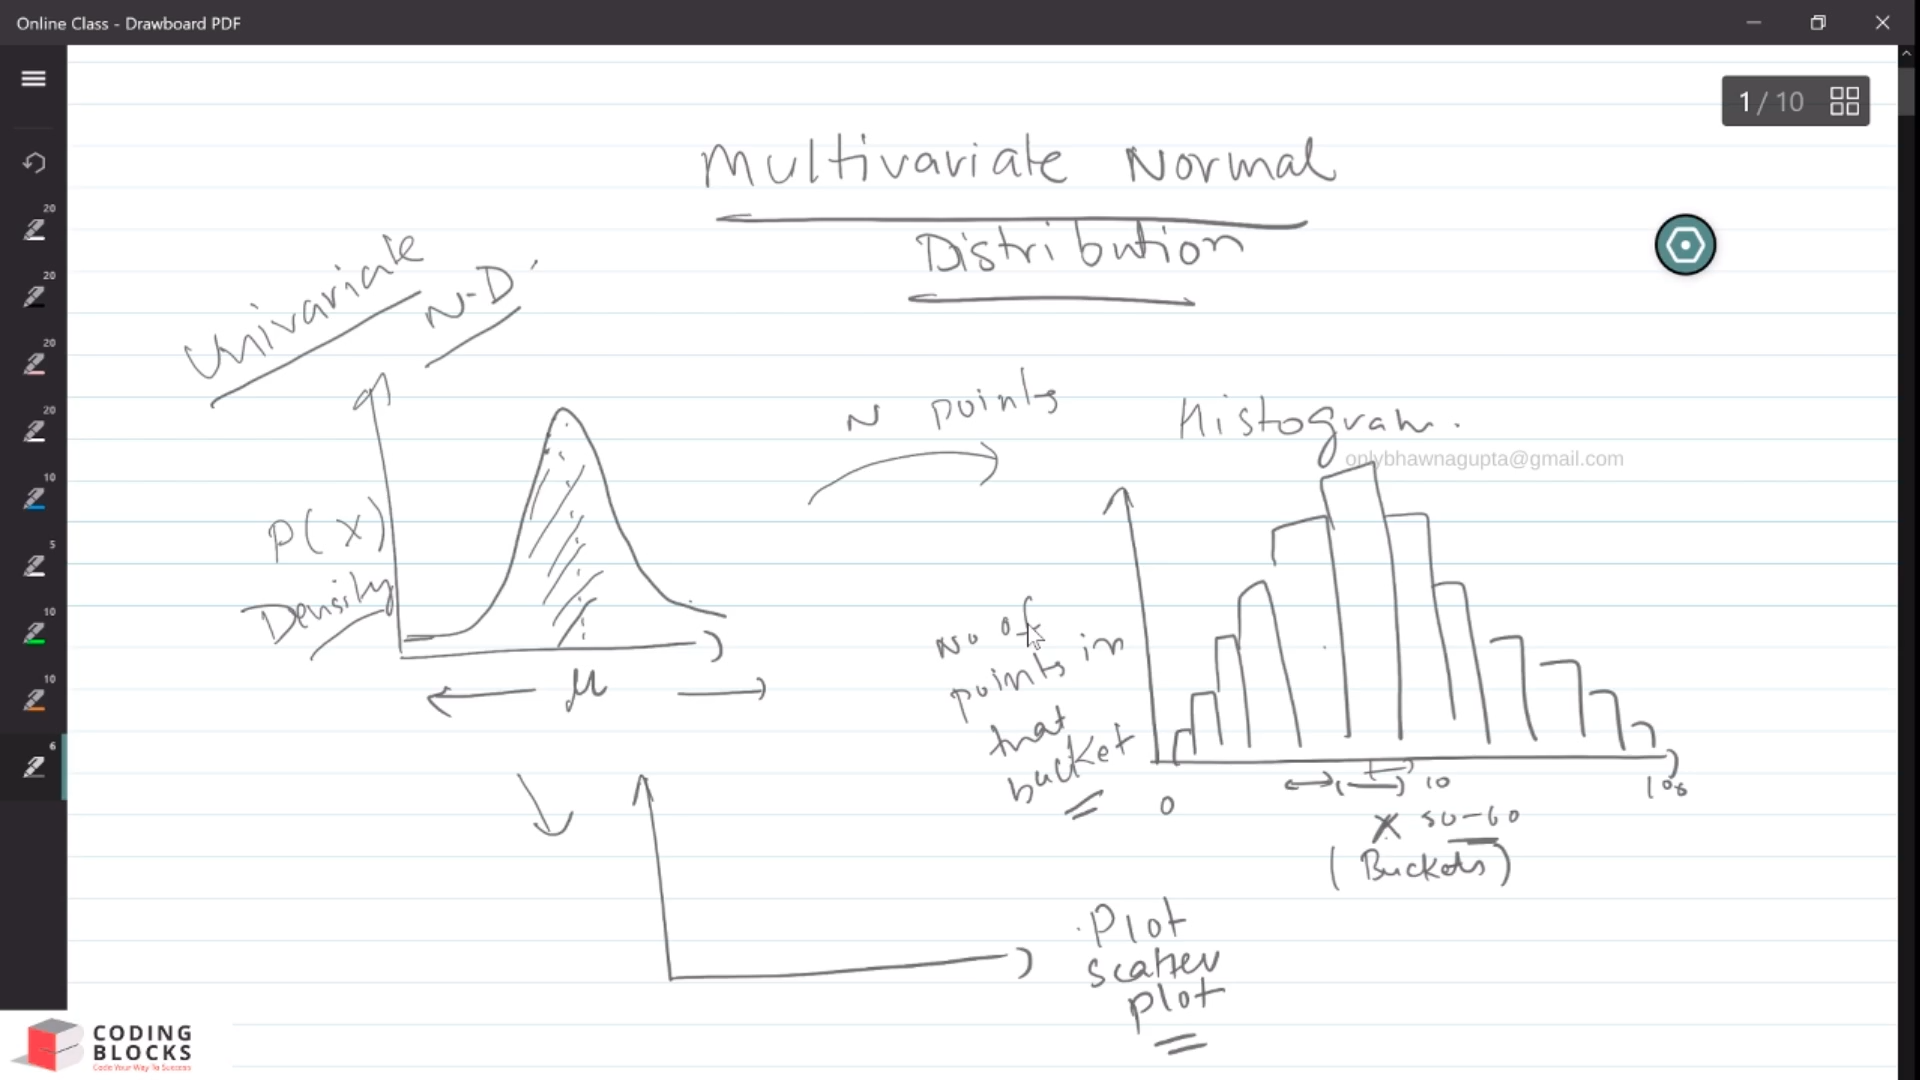 Online Class - Drawboard PDF
1 / 10
Multivariate Normal
Distribution
Univariate
N-D
20
20
20
20
10
5
10
10
6
N points
Histogram.
onlybhawnagupta@gmail.com
P(X)
Density
μ
No of
points in
that
bucket
0
10
100
X 50-60
(Buckets)
Plot
scatter
plot
CODING
BLOCKS
Code Your Way To Success